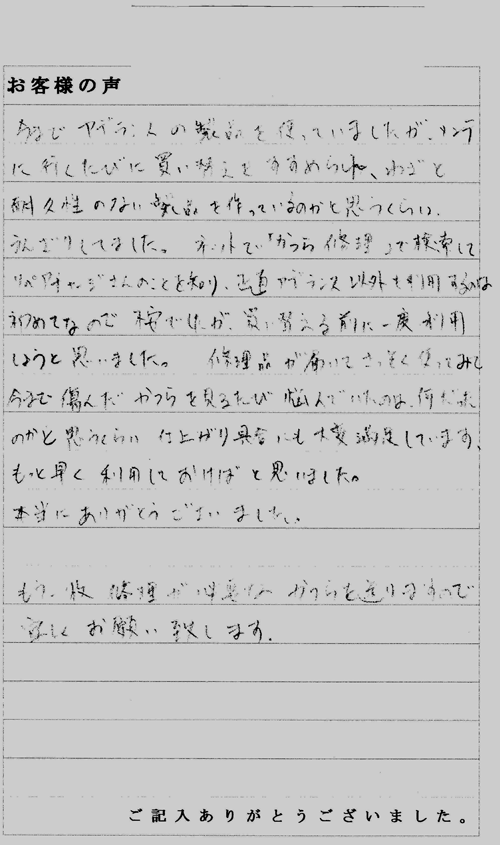 お客様の声
今までアデランスの製品を使っていましたが、メンテ
に行くたびに買い替えをすすめられ、わざと
耐久性のない製品を作っているのかと思うくらい、
うんざりしてました。 ネットで「かつら修理」で検索して
リペアチャージさんのことを知り、正直アデランス以外を利用するのは
初めてなので不安でしたが、買い替える前に一度利用
しようと思いました。 修理品が届いてさっそく使ってみて
今まで傷んだかつらを見るたび悩んでいたのは、何だった
のかと思うくらい仕上がり具合にも大変満足しています。
もっと早く利用しておけばと思いました。
本当にありがとうございました。
もう一枚修理が必要なかつらを送りますので
宜しくお願い致します。
ご記入ありがとうございました。